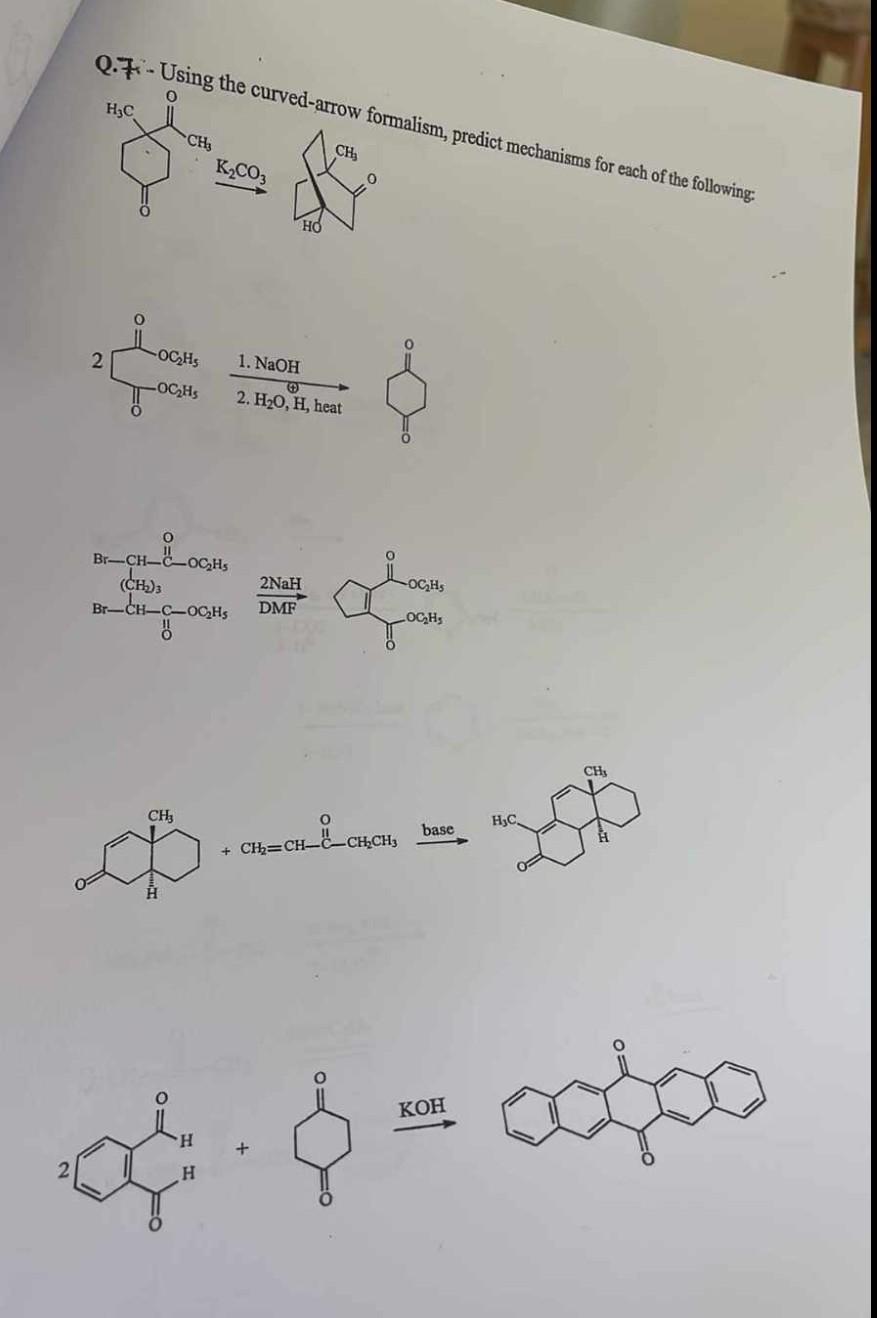 Q.7 - Using the curved-arrow formalism, predict mechanisms for each of the following:
O
H₃C
CH₃
K₂CO₃
CH₃
O
O
HO
O
2
OC₂H₅
OC₂H₅
O
1. NaOH
⊕
2. H₂O, H, heat
O
O
O
Br—CH—C—OC₂H₅
(CH₂)₃
Br—CH—C—OC₂H₅
O
2NaH
DMF
O
OC₂H₅
OC₂H₅
O
CH₃
O
H
O
+ CH₂=CH—C—CH₂CH₃
base
CH₃
H₃C
O
H
O
H
2
H
O
+
O
O
KOH
O
O